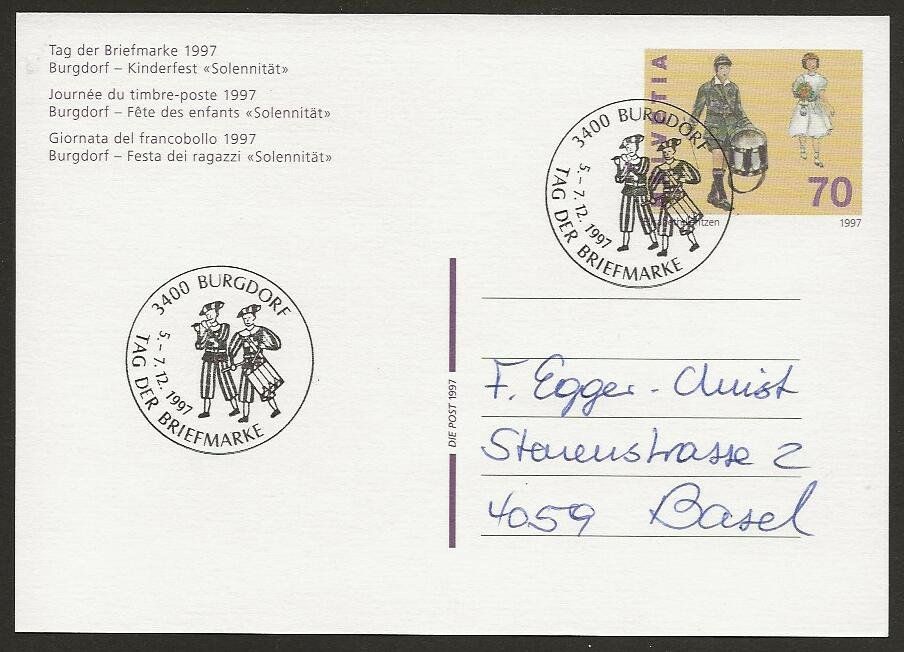 Tag der Briefmarke 1997
Burgdorf – Kinderfest «Solennität»
Journée du timbre-poste 1997
Burgdorf – Fête des enfants «Solennität»
Giornata del francobollo 1997
Burgdorf – Festa dei ragazzi «Solennität»
HELVETIA
70
1997
3400 BURGDORF
5.–7.12.1997
TAG DER BRIEFMARKE
3400 BURGDORF
5.–7.12.1997
TAG DER BRIEFMARKE
DIE POST 1997
F. Egger-Christ
2
4059 Basel